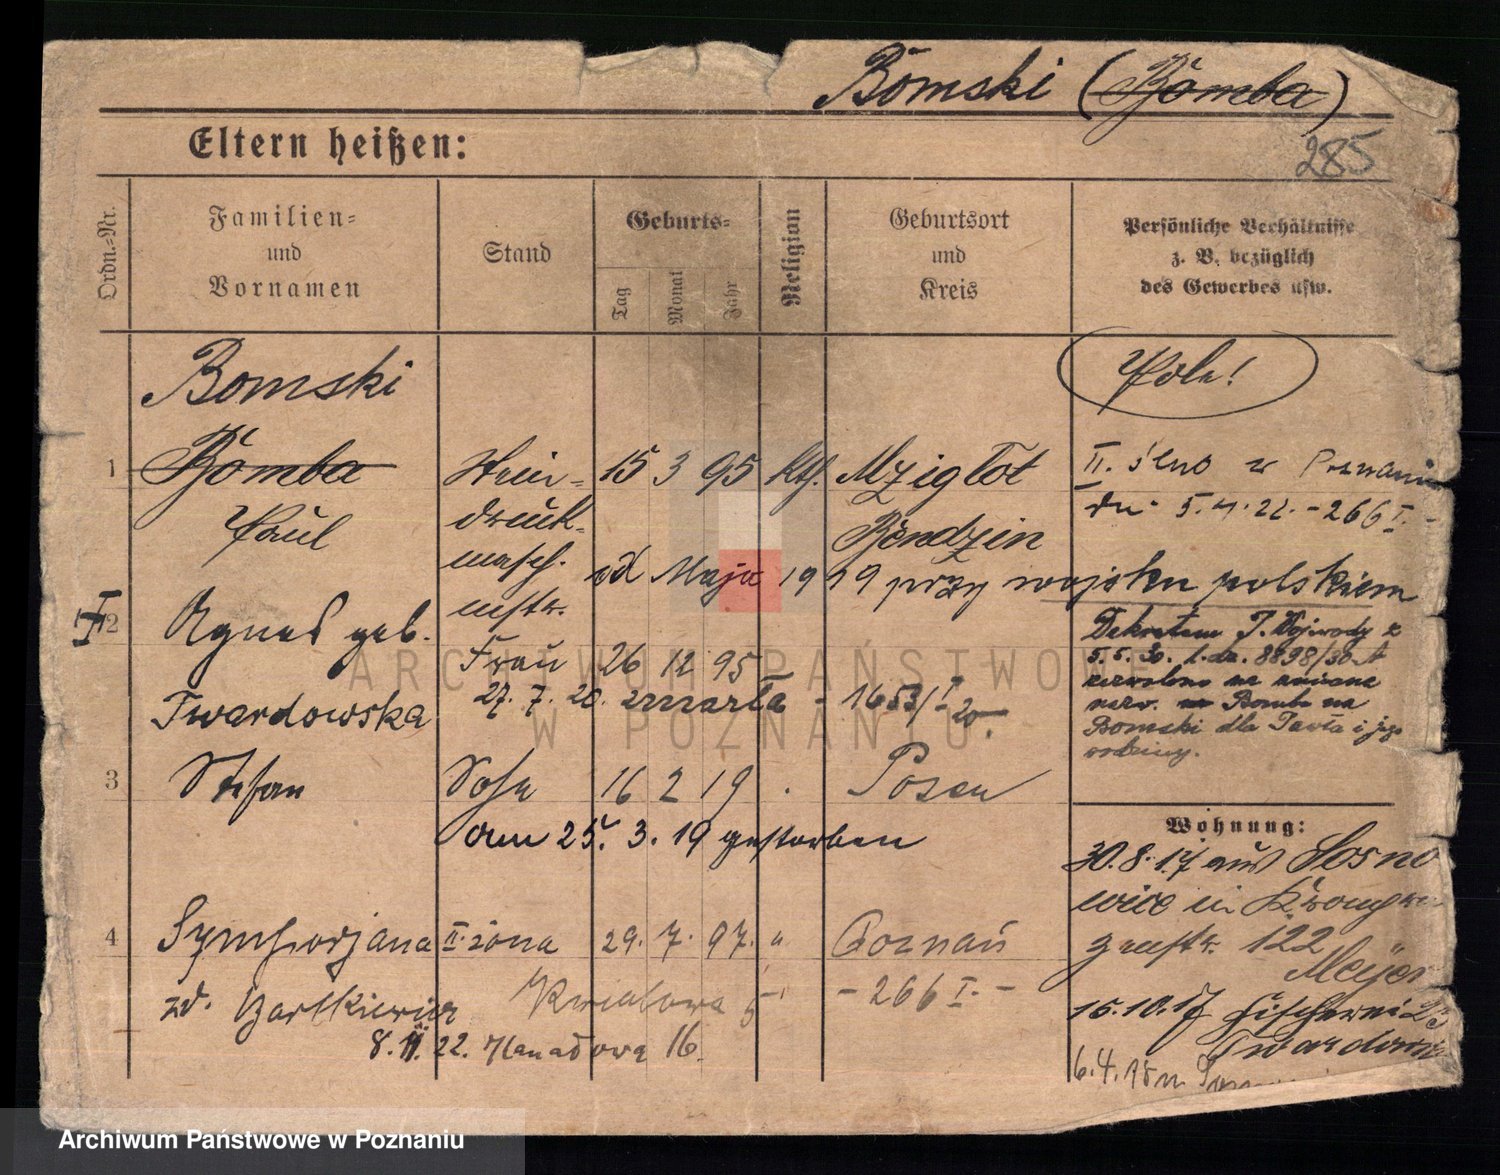 Bomski (Bömba)
Eltern heißen:
285
Ordn.-Nr.
Familien-
und
Vornamen
Stand
Geburts-
Tag
Monat
Jahr
Religion
Geburtsort
und
Kreis
Persönliche Verhältnisse
z. B. bezüglich
des Gewerbes usw.
Bomski
Pole!
1 Bömba Stein- 15 3 95 kth. Mzigłot
Paul druck- Bendzin
masch.
mstr.
II. ślub w Poznaniu
dn. 5.4.22. - 266 I. -
od Maja 1919 przy wojsku polskiem
2 Agnes geb. Frau 26 12 95
Twardowska 27. 7. 20. zmarła - 1653/I 20.
Dekretem P. Wojewody z
5.5.30. l.dz. 8898/30 A
zezwolono na zmianę
nazw. Bomba na
Bomski dla Pawła i jego
rodziny.
3 Stefan Sohn 16 2 19 Posen
am 25. 3. 19 gestorben
4 Symforjana II. żona 29. 7. 97. " Poznań
zd. Bartkiewicz Kwiatowa 5 - 266 I. -
8. 11. 22. 16.
Wohnung:
30.8.17 aus Sosno
wice in
122
Meyer
15.10.17 Fischerei
Twardow
6.4.18
ARCHIWUM PAŃSTWOWE
W POZNANIU
Archiwum Państwowe w Poznaniu